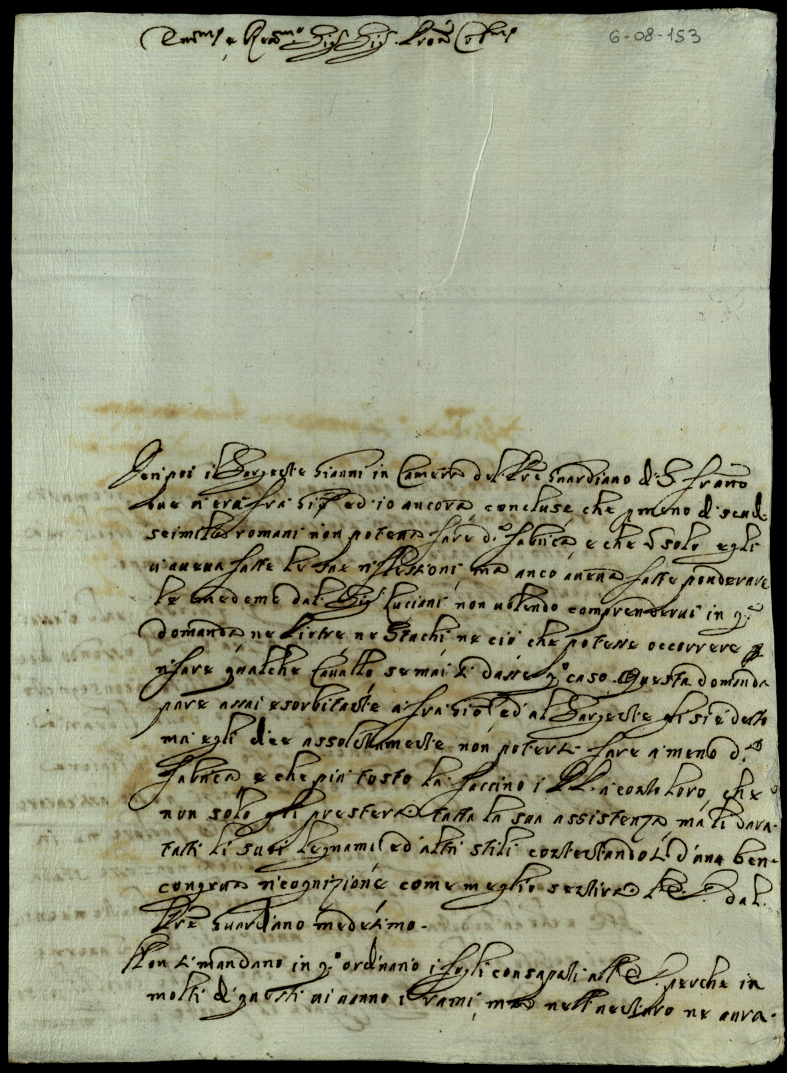 Em.mo e Rev.mo Sig.r Sig.r Pron Col.mo
6-08-153
poi il Sargente Gianni in Camera del Pre Guardiano di S. Franco
era fra Gio: ed io ancora concluse che p meno di scudi
seimila romani non poteva fare d.a fabrica e che solo egli
aveva fatte le sue riflessioni, ma anco aveva fatte ponderare
le medeme dal Sig.r Luciani non volendo comprendervi in q.a
domanda ne Pietre ne Stachi ne ciò che potesse occorrere p
rifare qualche Cavallo se mai si dasse q.o caso. Questa domanda
pare assai esorbitante a fra Gio: ed al Sargente gli si è detto
ma egli dice assolutamente non poterla fare a meno d.a
fabrica e che più tosto la faccino i PP. a conto loro, che
non solo gli presterà tutta la sua assistenza mà li darà
tutti li suoi legnami ed altri stili contentandosi d'una ben
congrua ricognizione come meglio sentirà dal
Pre Guardiano medesimo.
Non si mandano in q.o ordinario i fogli consaputi all' perche in
molti di questi vi vanno i rami, ma nell' venturo ne avrà